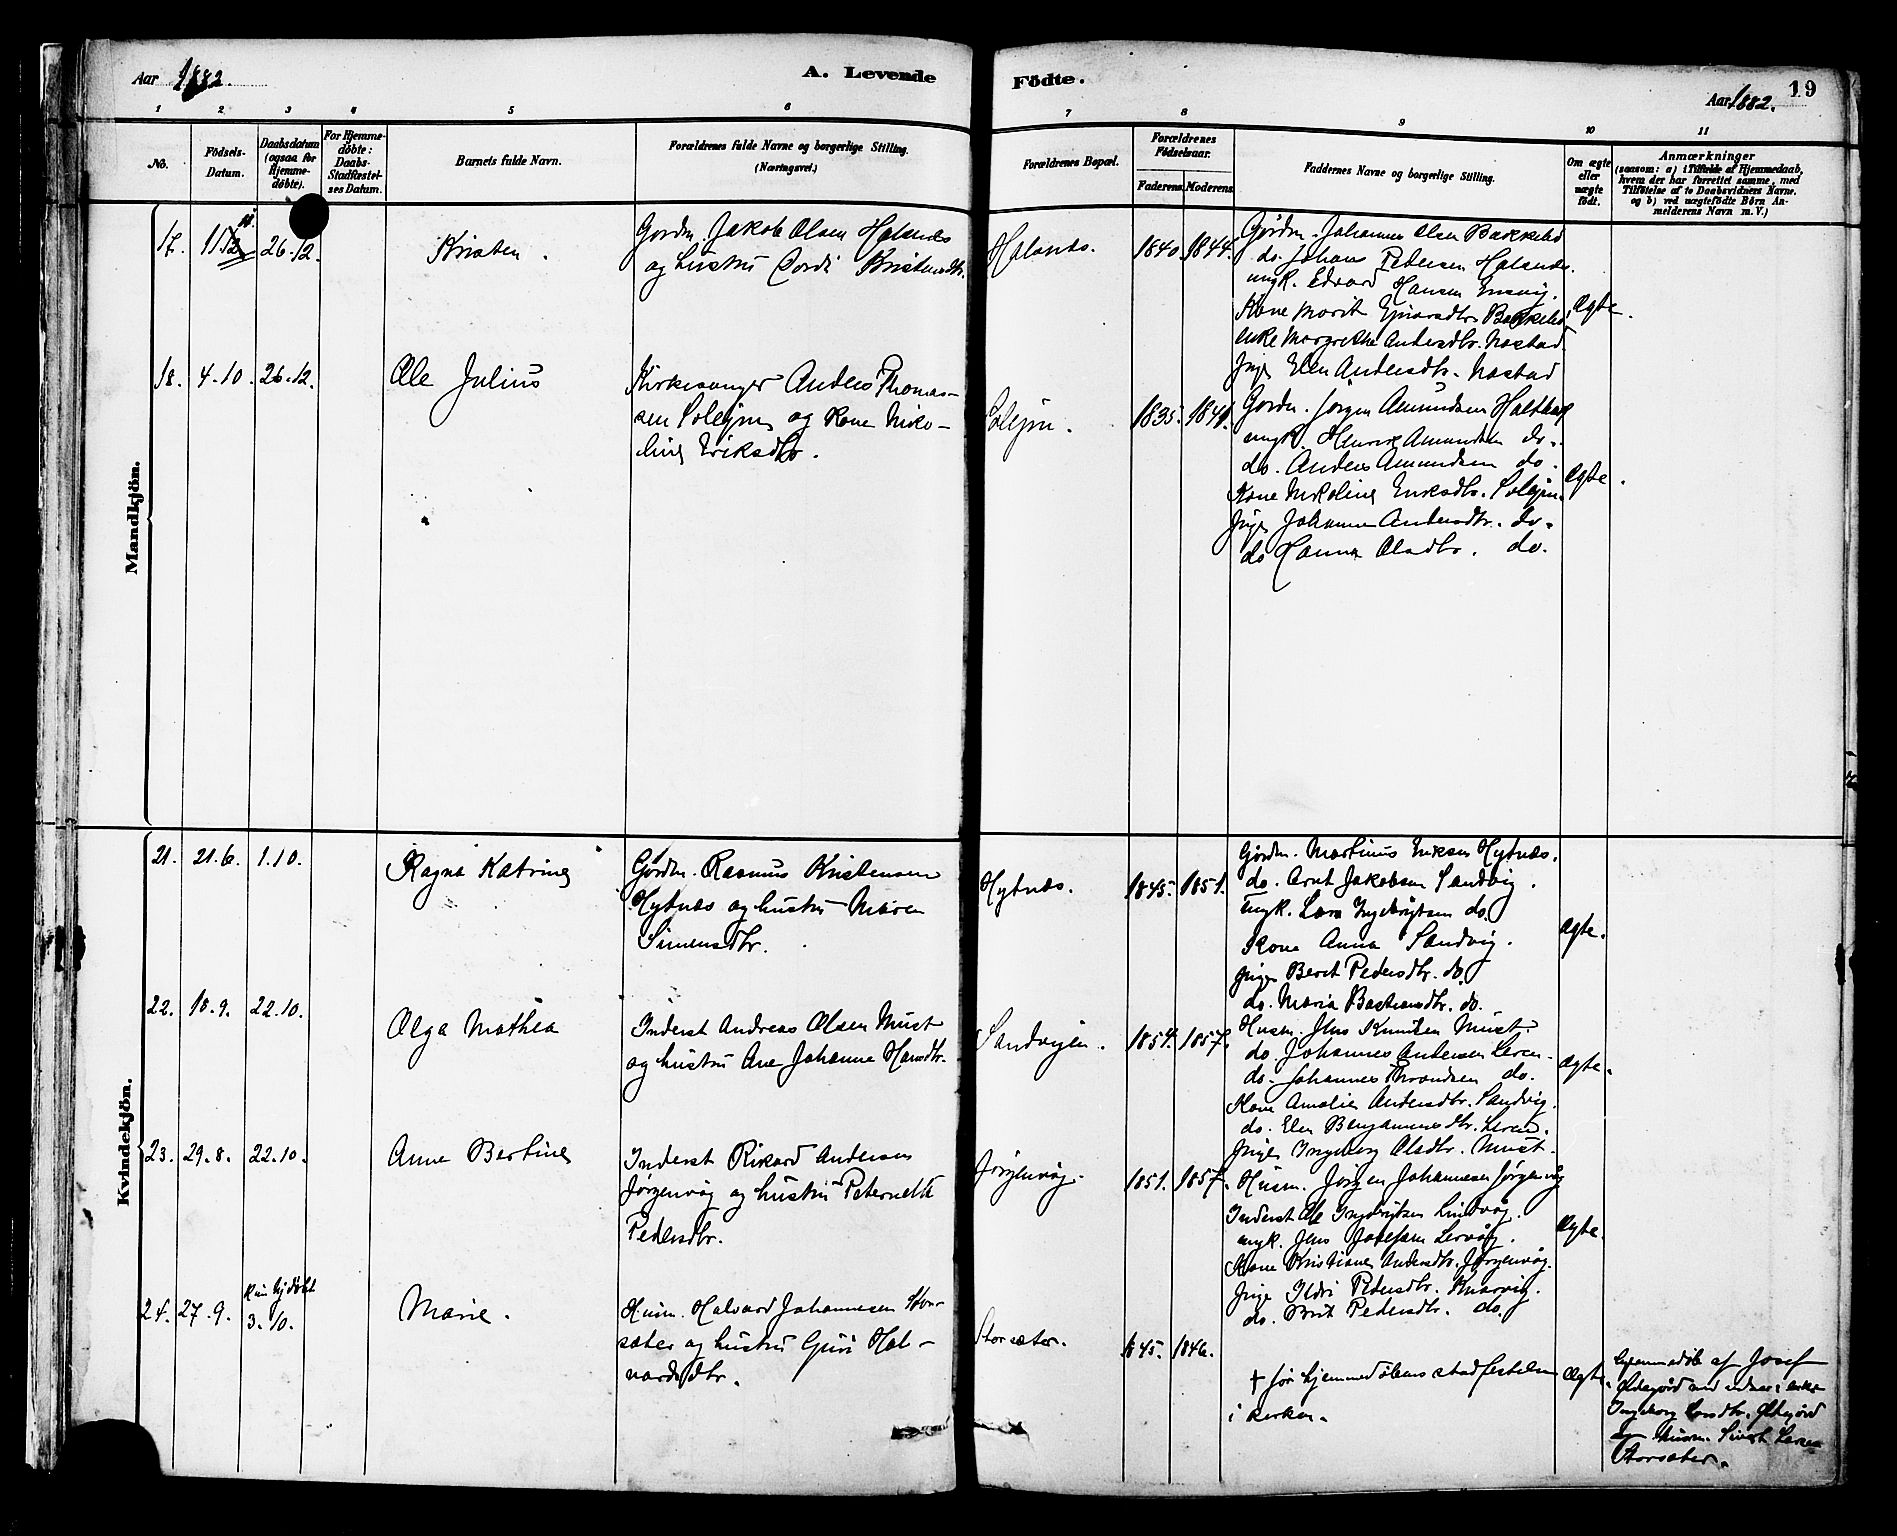 Aar 1882.
A. Levende
Födte.
Aar 1882.
19
1 2 3 4 5 6 7 8 9 10 11
No.
Födsels-
Datum.
Daabsdatum
(ogsaa for
Hjemme-
döbte).
For Hjemme-
döbte:
Daabs-
Stadfæstel-
ses Datum.
Barnets fulde Navn.
Forældrenes fulde Navne og borgerlige Stilling.
(Næringsvei.)
Forældrenes Bopæl.
Forældrenes
Födselsaar.
Faderens. Moderens.
Faddernes Navne og borgerlige Stilling.
Om ægte
eller
uægte
födt.
Anmærkninger
(saasom: a) i Tilfælde af Hjemmedaab,
hvem der har forrettet samme, med
Tilföielse af to Daabsvidners Navne.
og b) ved uægtefödte Börn An-
melderens Navn m. V.)
Mandkjön.
17. 26.12. Kristen.
Gordm. Jakob Olsen Halsnæs
og hustru Kristensdtr.
Halsnæs.
1840. 1844.
Gårdm. Johannes Olsen Bækkelid
do. Johans Pedersen Halsnæs.
ungk. Edvard Hansen
Kone Marit
Enke Margrethe Andersdtr. Nastad.
Pige Elen Andersdtr. Nastad
Ægte.
18. 4.10. 26.12. Ole Julius
Kirkesanger Anders Thomas-
sen Solejm og Kone Niko-
line Eriksdtr.
Solejm.
1835. 1841.
Gordm. Jørgen Amundsen
ungk. Henrik Amundsen do.
do. Anders Amundsen do.
Kone Nikoline Eriksdtr. Solejm.
Pige Johanna Andersdtr. do.
do Hanna Olsdtr. do.
Ægte.
Kvindekjön.
21. 21.6. 1.10. Ragna Katrine
Gårdm. Rasmus Kristensen
Hytnæs og hustru Maren
Simensdtr.
Hytnæs.
1845. 1851.
Gårdm. Martinus Eriksen Hytnæs.
do. Arnt Jakobsen Sandvig.
ungk. Lars Ingebrigtsen do.
Kone Anna Sandvig.
Pige Berit Pedersdtr. do.
do. Maria Bastiansdtr. do.
Ægte.
22. 18.9. 22.10. Olga Mathea
Inderst Andreas Olsen Must
og hustru Ane Johanna Hansdtr.
Sandvigen.
1854. 1857.
Husm. Jens Knudsen Must
do. Johannes Andersen Leren.
do. Johannes Throndsen do.
Kone Amalie Andersdtr. Sandvig.
do. Elen Benjaminsdtr. Leren.
Pige Ingeborg Olsdtr. Must.
Ægte.
23. 29.8. 22.10. Anne Bertine
Inderst Rikard Andersen
Jørgenvåg og hustru Peternelle
Pedersdtr.
Jørgenvåg.
1851. 1857.
Husm. Jørgen Johannesen Jørgenvåg
Inderst Ole Ingebrigtsen
ungk. Jens Josefsen Lervåg.
Kone Kristiane Andersdtr. Jørgenvåg.
Pige Ildri Pedersdtr.
do. Brit Pedersdtr. do.
Ægte.
24. 27.9. Kun hj.döbt
3.10.
Marie.
Husm. Halvard Johannesen Stor-
sæter og hustru Guri Hal-
vardsdtr.
Storsæter.
1845. 1846.
† før hjemmedåbens stadfestelse
i kirken.
Ægte.
Hjemmedöbt af Josef
Ingeborg
og Husm. Sivert Leren
Storsæter.